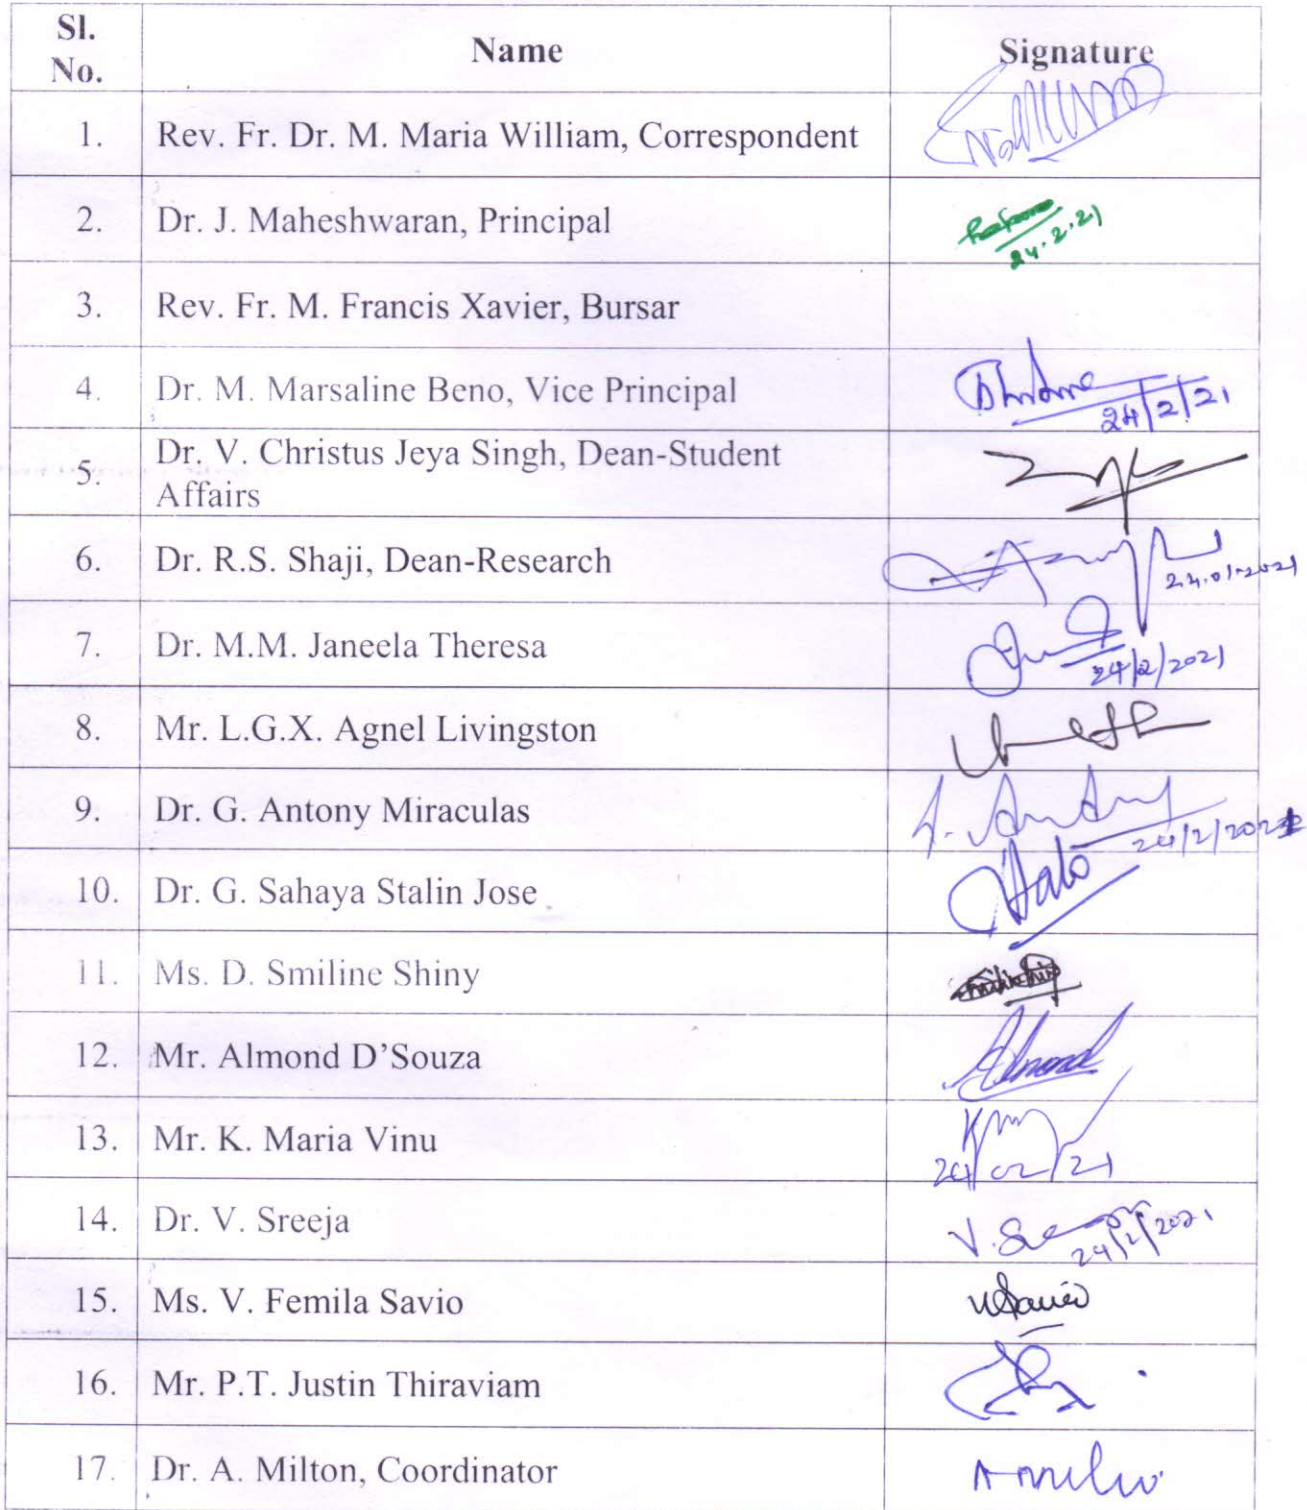 Sl. No. Name Signature
1. Rev. Fr. Dr. M. Maria William, Correspondent
2. Dr. J. Maheshwaran, Principal 24.2.21
3. Rev. Fr. M. Francis Xavier, Bursar
4. Dr. M. Marsaline Beno, Vice Principal 24/2/21
5. Dr. V. Christus Jeya Singh, Dean-Student
Affairs
6. Dr. R.S. Shaji, Dean-Research 24.01.2021
7. Dr. M.M. Janeela Theresa 24/2/2021
8. Mr. L.G.X. Agnel Livingston
9. Dr. G. Antony Miraculas 24/2/2021
10. Dr. G. Sahaya Stalin Jose
11. Ms. D. Smiline Shiny
12. Mr. Almond D'Souza Almond
13. Mr. K. Maria Vinu 24/02/21
14. Dr. V. Sreeja 24/2/2021
15. Ms. V. Femila Savio
16. Mr. P.T. Justin Thiraviam
17. Dr. A. Milton, Coordinator